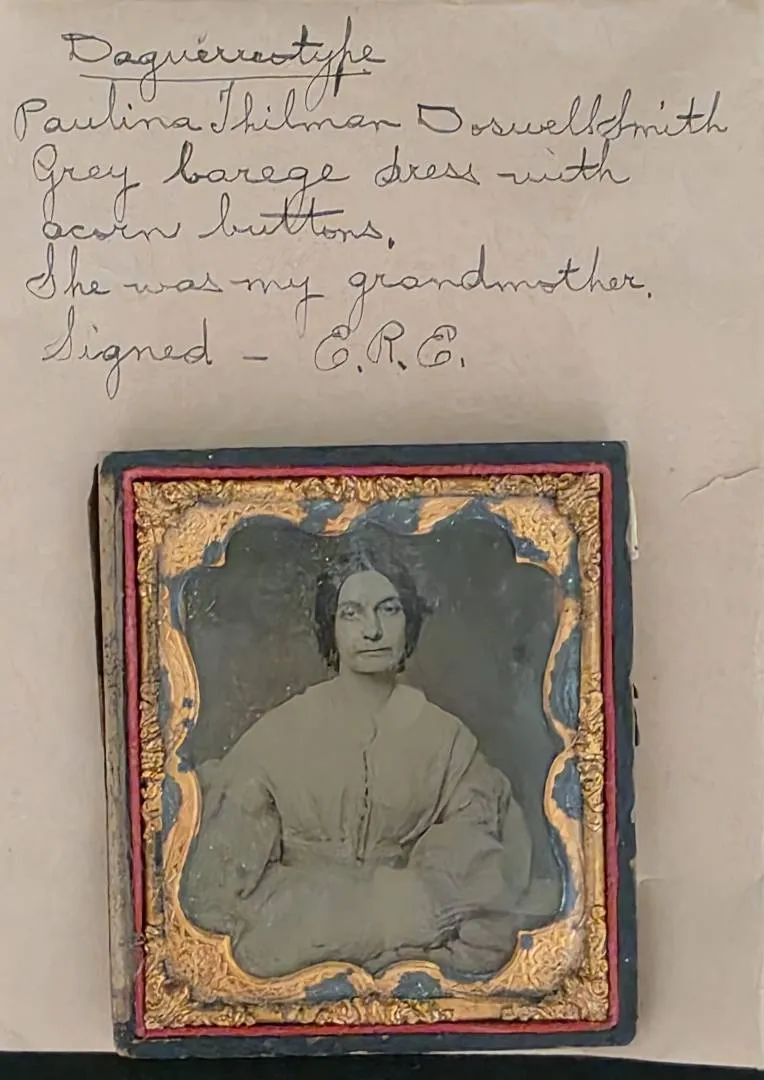 Daguerreotype
Paulina Thilman Doswell Smith
Grey barege dress with
acorn buttons.
She was my grandmother.
Signed - E.R.E.